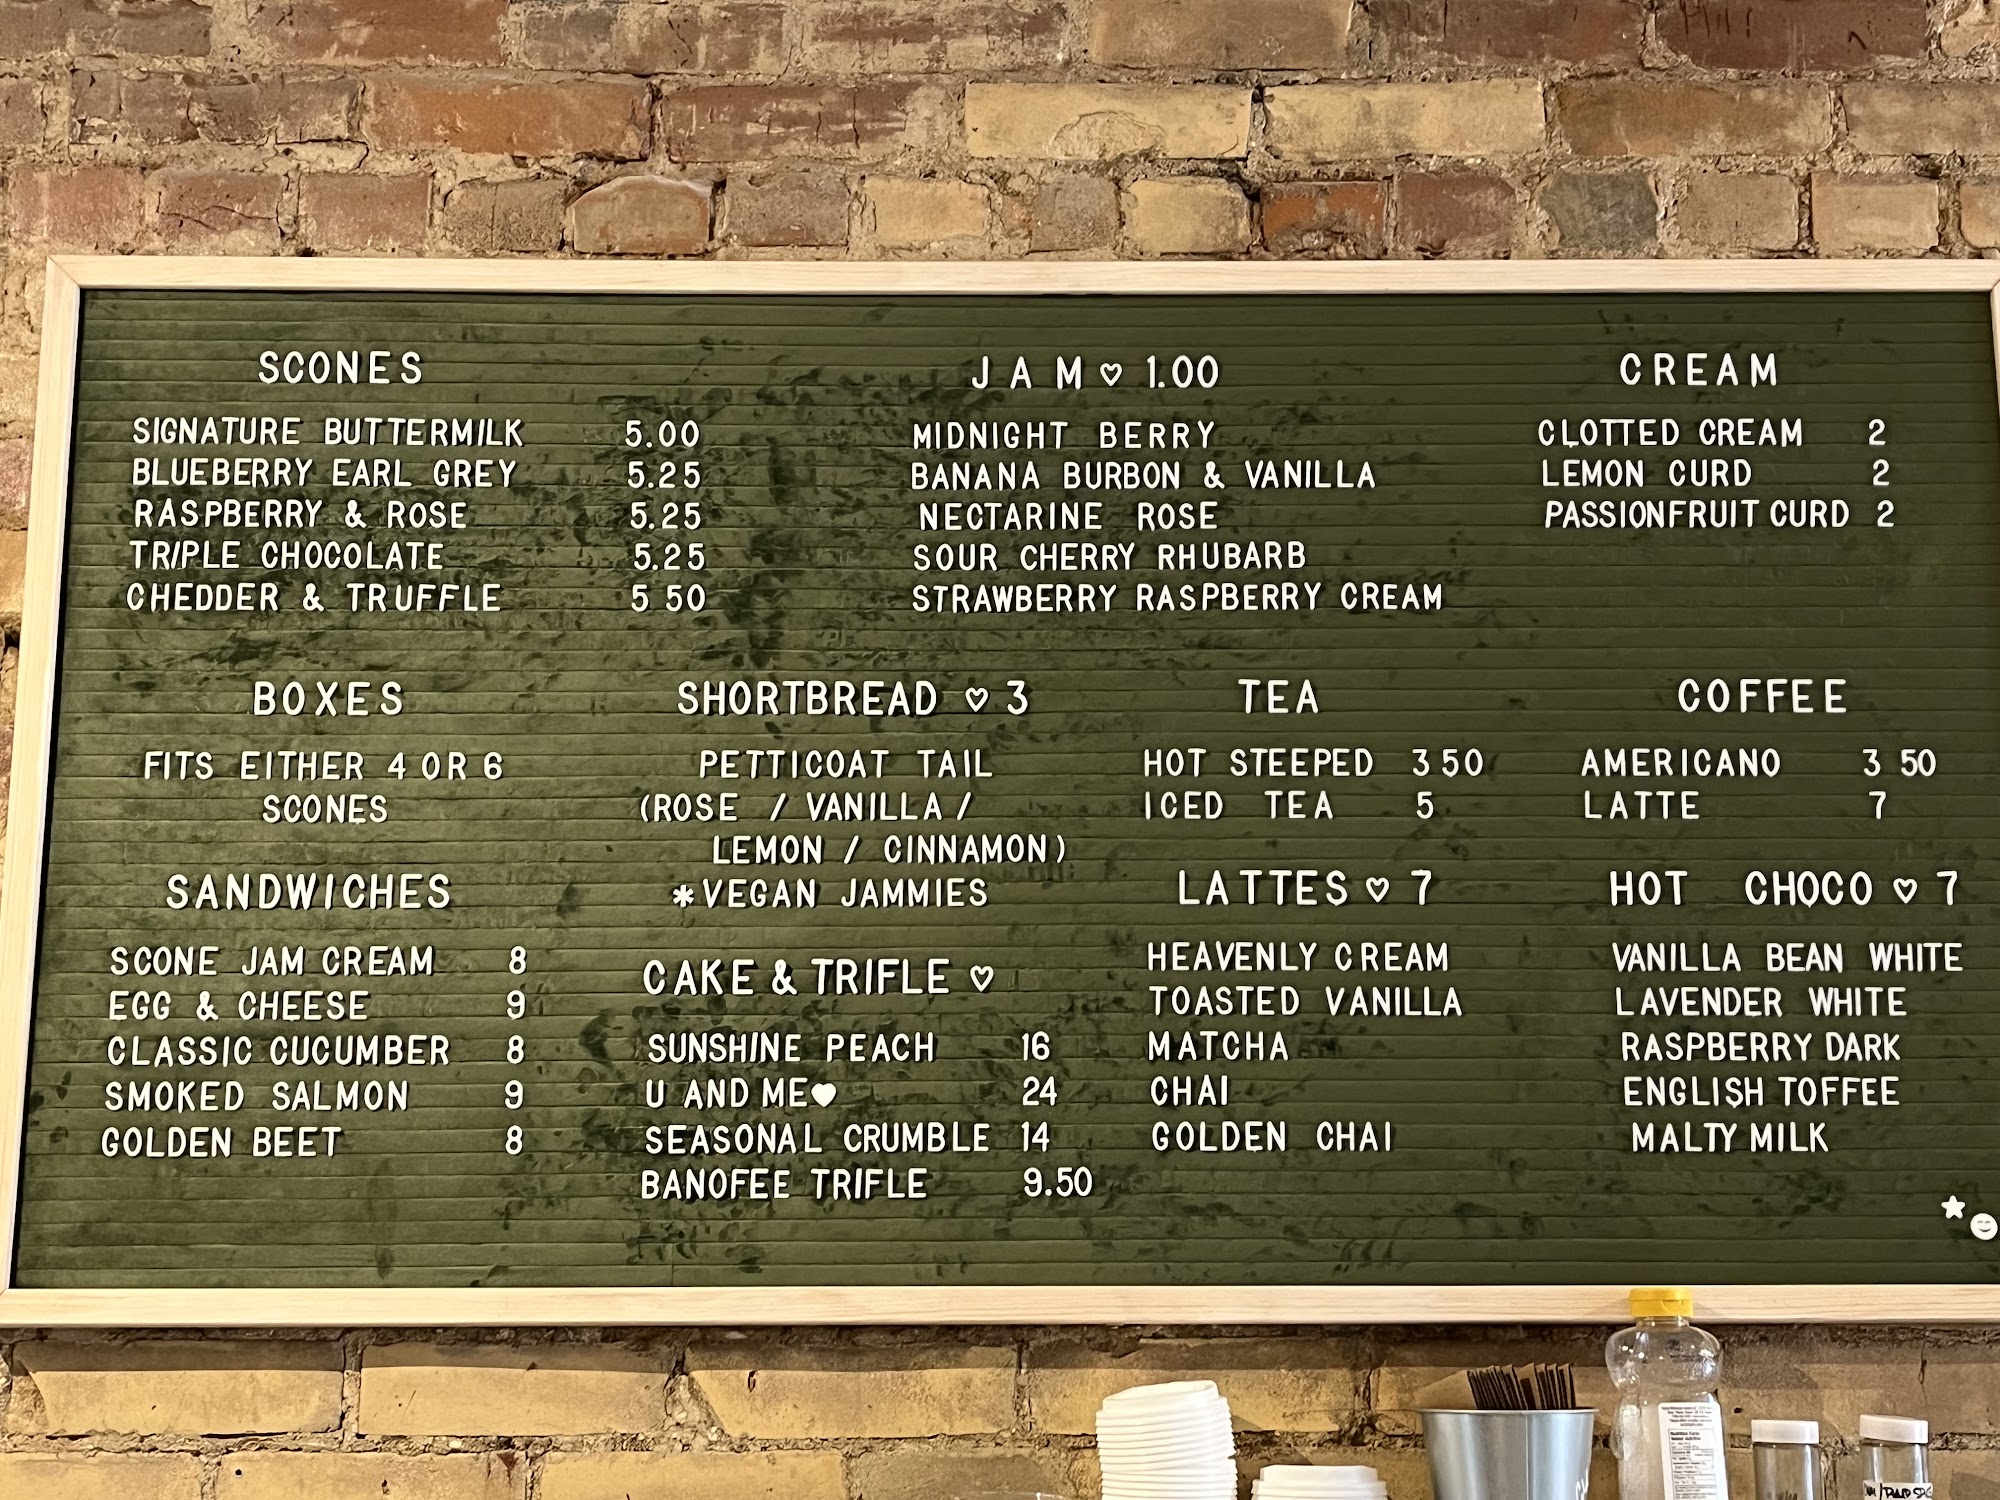 SCONES
SIGNATURE BUTTERMILK 5.00
BLUEBERRY EARL GREY 5.25
RASPBERRY & ROSE 5.25
TRIPLE CHOCOLATE 5.25
CHEDDER & TRUFFLE 5 50
JAM ♡ 1.00
MIDNIGHT BERRY
BANANA BURBON & VANILLA
NECTARINE ROSE
SOUR CHERRY RHUBARB
STRAWBERRY RASPBERRY CREAM
CREAM
CLOTTED CREAM 2
LEMON CURD 2
PASSIONFRUIT CURD 2
BOXES
FITS EITHER 4 OR 6
SCONES
SANDWICHES
SCONE JAM CREAM 8
EGG & CHEESE 9
CLASSIC CUCUMBER 8
SMOKED SALMON 9
GOLDEN BEET 8
SHORTBREAD ♡ 3
PETTICOAT TAIL
(ROSE / VANILLA /
LEMON / CINNAMON)
*VEGAN JAMMIES
CAKE & TRIFLE ♡
SUNSHINE PEACH 16
U AND ME♥ 24
SEASONAL CRUMBLE 14
BANOFEE TRIFLE 9.50
TEA
HOT STEEPED 3 50
ICED TEA 5
LATTES ♡ 7
HEAVENLY CREAM
TOASTED VANILLA
MATCHA
CHAI
GOLDEN CHAI
COFFEE
AMERICANO 3 50
LATTE 7
HOT CHOCO ♡ 7
VANILLA BEAN WHITE
LAVENDER WHITE
RASPBERRY DARK
ENGLISH TOFFEE
MALTY MILK